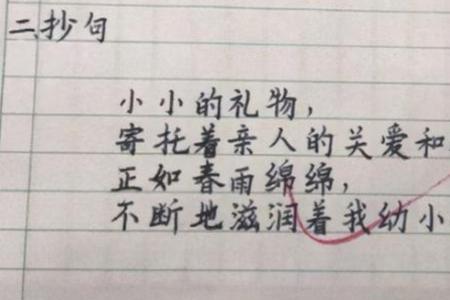 二、抄句
小小的礼物，
寄托着亲人的关爱和
正如春雨绵绵，
不断地滋润着我幼小